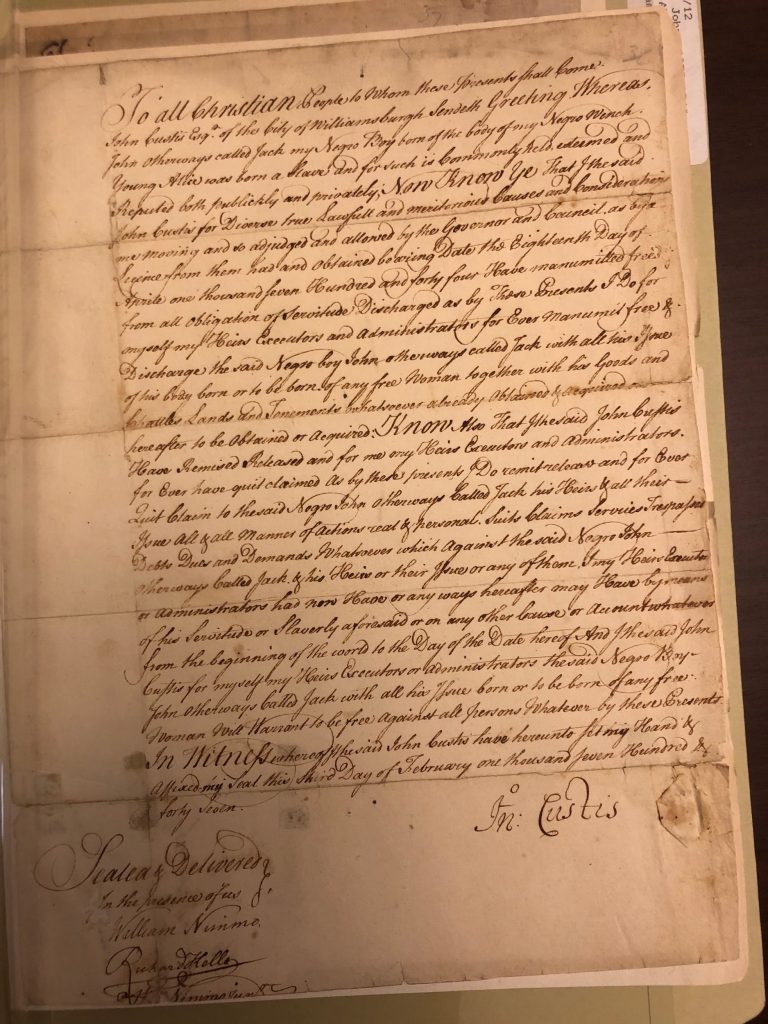 To all Christian People to Whom these Presents shall Come.
John Custis Esqr. of the City of Williamsburgh Sendeth Greeting Whereas,
John otherways called Jack my Negro Boy born of the body of my Negro Wench
Young Alice was born a Slave and for such is Commonly held esteemed and
Reputed both publickly and privately; Now Know Ye That I the said
John Custis for Diverse true Lawfull and meritorious Causes and Consideration
me moving and so adjudged and allowed by the Governor and Council, as by a
Licince from them had and Obtained bearing Date the Eighteenth Day of
Aprile one thousand seven Hundred and forty four Have manumitted freed
from all Obligation of Servitude Discharged as by These Presents I Do for
myself my Heirs Executors and Administrators for Ever Manumit free &
Discharge the said Negro boy John otherways called Jack with all his Issue
of his body born or to be born of any free Woman together with his Goods and
Chattles Lands and Tenements whatsoever already Obtained & acquired
hereafter to be Obtained or Acquired: Know Also That I the said John Custis
Have Remised Released and for me my Heirs Executors and Administrators.
for Ever have quit claimed As by these presents I Do remit release and for Ever
Quit Claim to the said Negro John Otherways Called Jack his Heirs & all their
Issue All & all Manner of Actions real & personal Suits Claims Services Trespasses
Debts Dues and Demands Whatsoever which Against the said Negro John
Otherways Called Jack & his Heirs or their Issue or any of them. I my Heirs Executors
or Administrators had now Have or any ways hereafter may Have by means
of his Servitude or Slaverly aforesaid or on any other Cause or Account whatever
from the beginning of the world to the Day of the Date hereof And I the said John
Custis for myself my Heirs Executors or Administrators the said Negro Boy
John Otherways Called Jack with all his Issue born or to be born of any free
Woman Will Warrant to be free Against all Persons Whatever by these Presents
In Witness whereof I the said John Custis have hereunto set my Hand &
Affixed my Seal this third Day of February one thousand seven Hundred &
forty seven.
Jno: Custis
Sealed & Delivered
In the presence of us
William Nimmo,